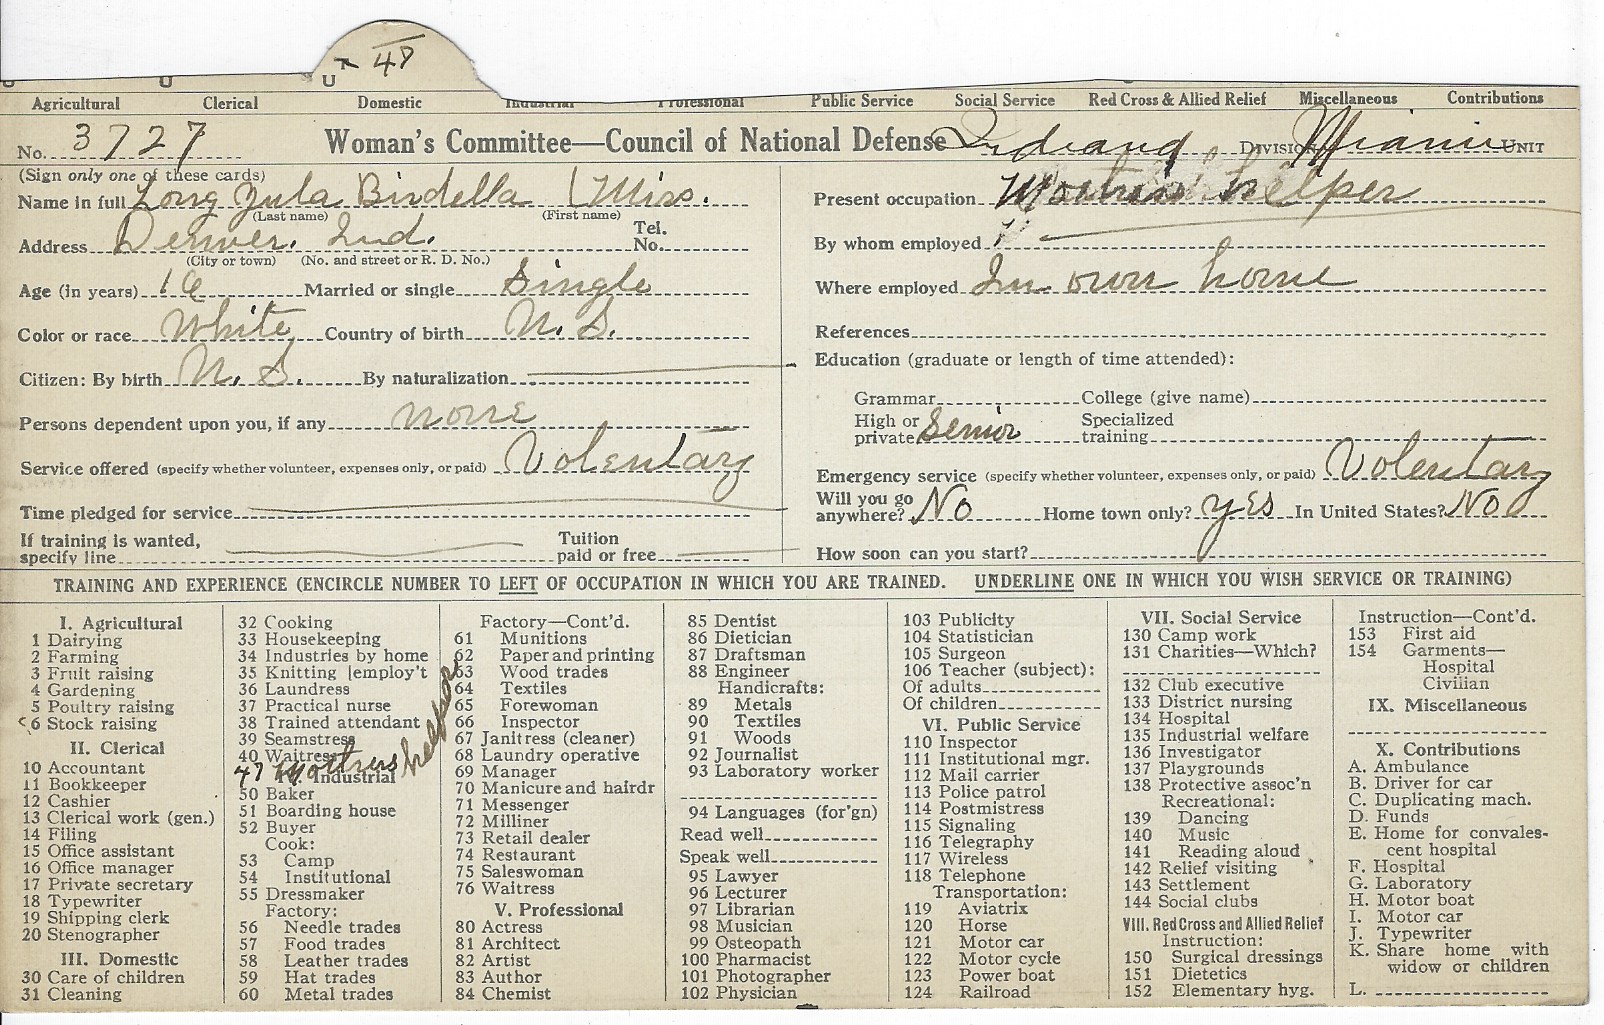 47
Agricultural Clerical Domestic Industrial Professional Public Service Social Service Red Cross & Allied Relief Miscellaneous Contributions
No. 3727 Woman's Committee—Council of National Defense Indiana DIVISION Miami UNIT
(Sign only one of these cards)
Name in full Long Zula Birdella (Miss.
(Last name) (First name)
Address Denver. Ind. Tel. No.
(City or town) (No. and street or R. D. No.)
Age (in years) Married or single Single
Color or race White Country of birth U. S.
Citizen: By birth U. S. By naturalization
Persons dependent upon you, if any none
Service offered (specify whether volunteer, expenses only, or paid) Volentary
Time pledged for service
If training is wanted, specify line Tuition paid or free
Present occupation Mothers helper
By whom employed
Where employed In own home
References
Education (graduate or length of time attended):
Grammar College (give name)
High or private Senior Specialized training
Emergency service (specify whether volunteer, expenses only, or paid) Volentary
Will you go anywhere? No Home town only? yes In United States? No
How soon can you start?
TRAINING AND EXPERIENCE (ENCIRCLE NUMBER TO LEFT OF OCCUPATION IN WHICH YOU ARE TRAINED. UNDERLINE ONE IN WHICH YOU WISH SERVICE OR TRAINING)
I. Agricultural
1 Dairying
2 Farming
3 Fruit raising
4 Gardening
5 Poultry raising
6 Stock raising
II. Clerical
10 Accountant
11 Bookkeeper
12 Cashier
13 Clerical work (gen.)
14 Filing
15 Office assistant
16 Office manager
17 Private secretary
18 Typewriter
19 Shipping clerk
20 Stenographer
III. Domestic
30 Care of children
31 Cleaning
32 Cooking
33 Housekeeping
34 Industries by home
35 Knitting [employ't
36 Laundress
37 Practical nurse
38 Trained attendant
39 Seamstress
40 Waitress
47 Mothers helper
Industrial
50 Baker
51 Boarding house
52 Buyer
Cook:
53 Camp
54 Institutional
55 Dressmaker
Factory:
56 Needle trades
57 Food trades
58 Leather trades
59 Hat trades
60 Metal trades
Factory—Cont'd.
61 Munitions
62 Paper and printing
63 Wood trades
64 Textiles
65 Forewoman
66 Inspector
67 Janitress (cleaner)
68 Laundry operative
69 Manager
70 Manicure and hairdr
71 Messenger
72 Milliner
73 Retail dealer
74 Restaurant
75 Saleswoman
76 Waitress
V. Professional
80 Actress
81 Architect
82 Artist
83 Author
84 Chemist
85 Dentist
86 Dietician
87 Draftsman
88 Engineer
Handicrafts:
89 Metals
90 Textiles
91 Woods
92 Journalist
93 Laboratory worker
94 Languages (for'gn)
Read well
Speak well
95 Lawyer
96 Lecturer
97 Librarian
98 Musician
99 Osteopath
100 Pharmacist
101 Photographer
102 Physician
103 Publicity
104 Statistician
105 Surgeon
106 Teacher (subject):
Of adults
Of children
VI. Public Service
110 Inspector
111 Institutional mgr.
112 Mail carrier
113 Police patrol
114 Postmistress
115 Signaling
116 Telegraphy
117 Wireless
118 Telephone
Transportation:
119 Aviatrix
120 Horse
121 Motor car
122 Motor cycle
123 Power boat
124 Railroad
VII. Social Service
130 Camp work
131 Charities—Which?
132 Club executive
133 District nursing
134 Hospital
135 Industrial welfare
136 Investigator
137 Playgrounds
138 Protective assoc'n
Recreational:
139 Dancing
140 Music
141 Reading aloud
142 Relief visiting
143 Settlement
144 Social clubs
VIII. Red Cross and Allied Relief
Instruction:
150 Surgical dressings
151 Dietetics
152 Elementary hyg.
Instruction—Cont'd.
153 First aid
154 Garments—
Hospital
Civilian
IX. Miscellaneous
X. Contributions
A. Ambulance
B. Driver for car
C. Duplicating mach.
D. Funds
E. Home for convales-
cent hospital
F. Hospital
G. Laboratory
H. Motor boat
I. Motor car
J. Typewriter
K. Share home with
widow or children
L.